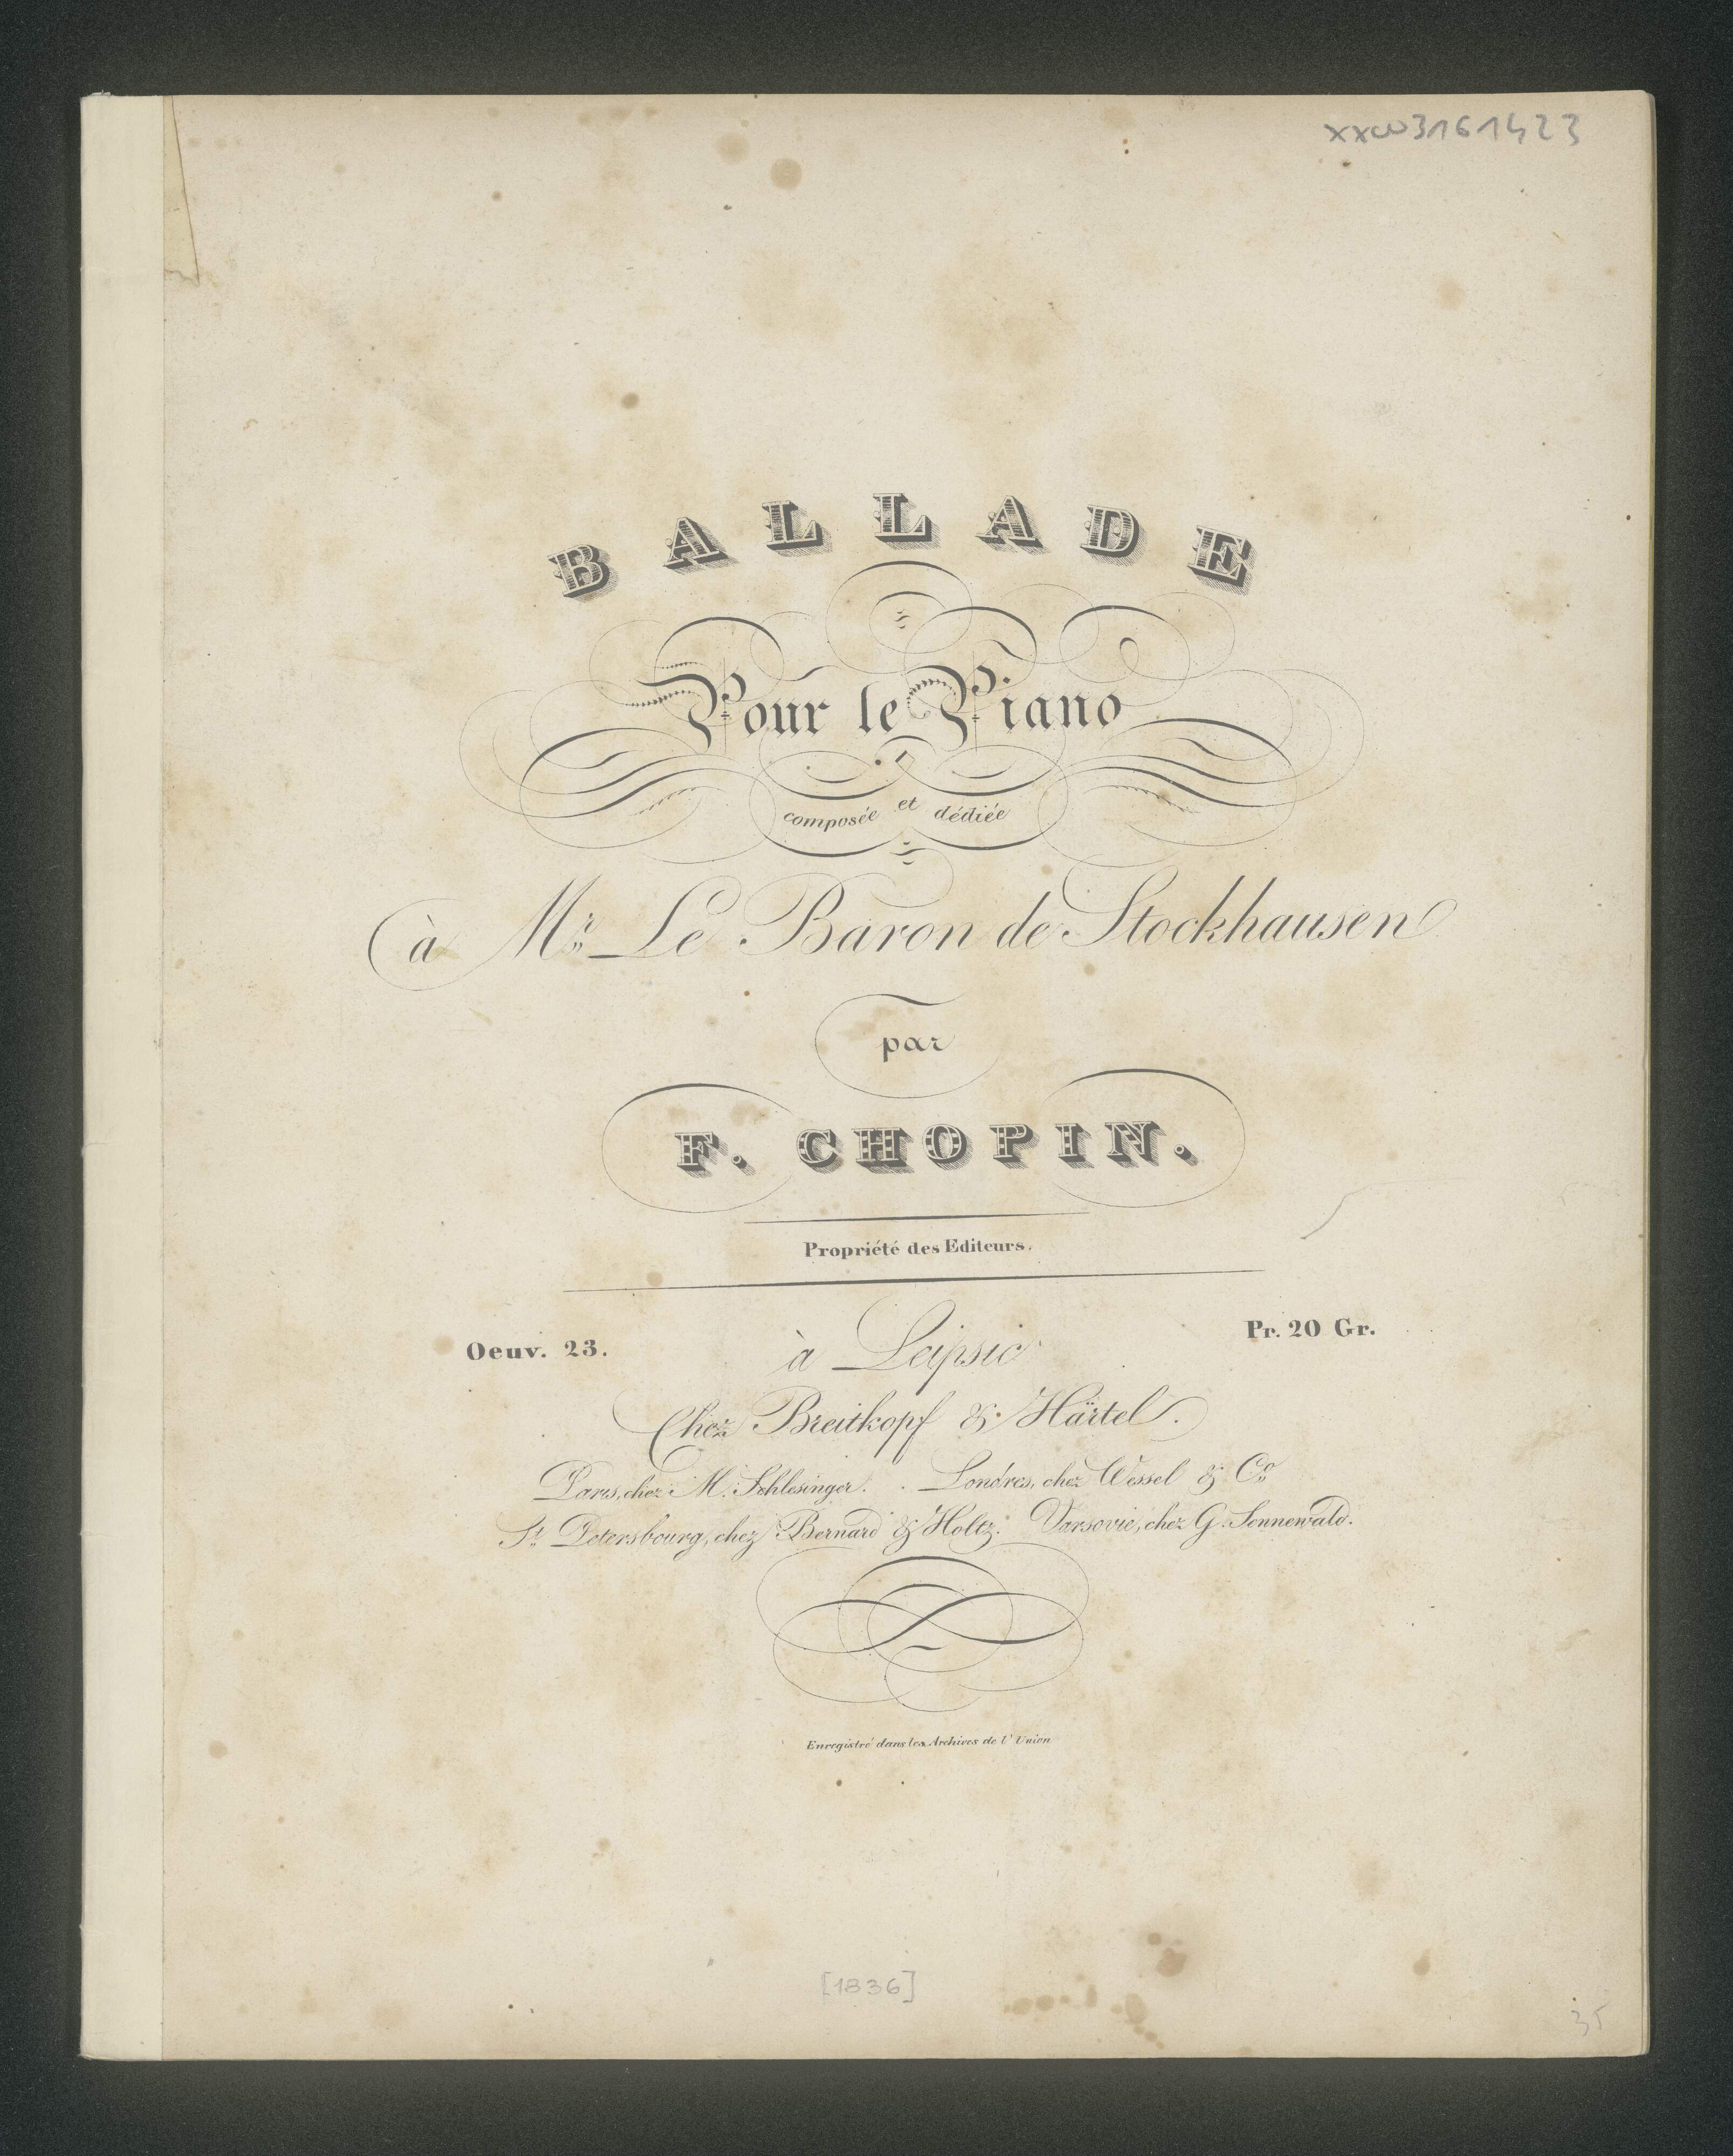 xxc003161423
BALLADE
Pour le Piano
composée et dédiée
à Mr. Le Baron de Stockhausen
par
F. CHOPIN.
Propriété des Editeurs.
Oeuv. 23.
à Leipsic
Pr. 20 Gr.
Chez Breitkopf & Härtel.
Paris, chez M. Schlesinger. Londres, chez Wessel & Co.
St. Petersbourg, chez Bernard & Holtz. Varsovie, chez G. Sennewald.
Enregistré dans les Archives de l'Union
[1836]
35